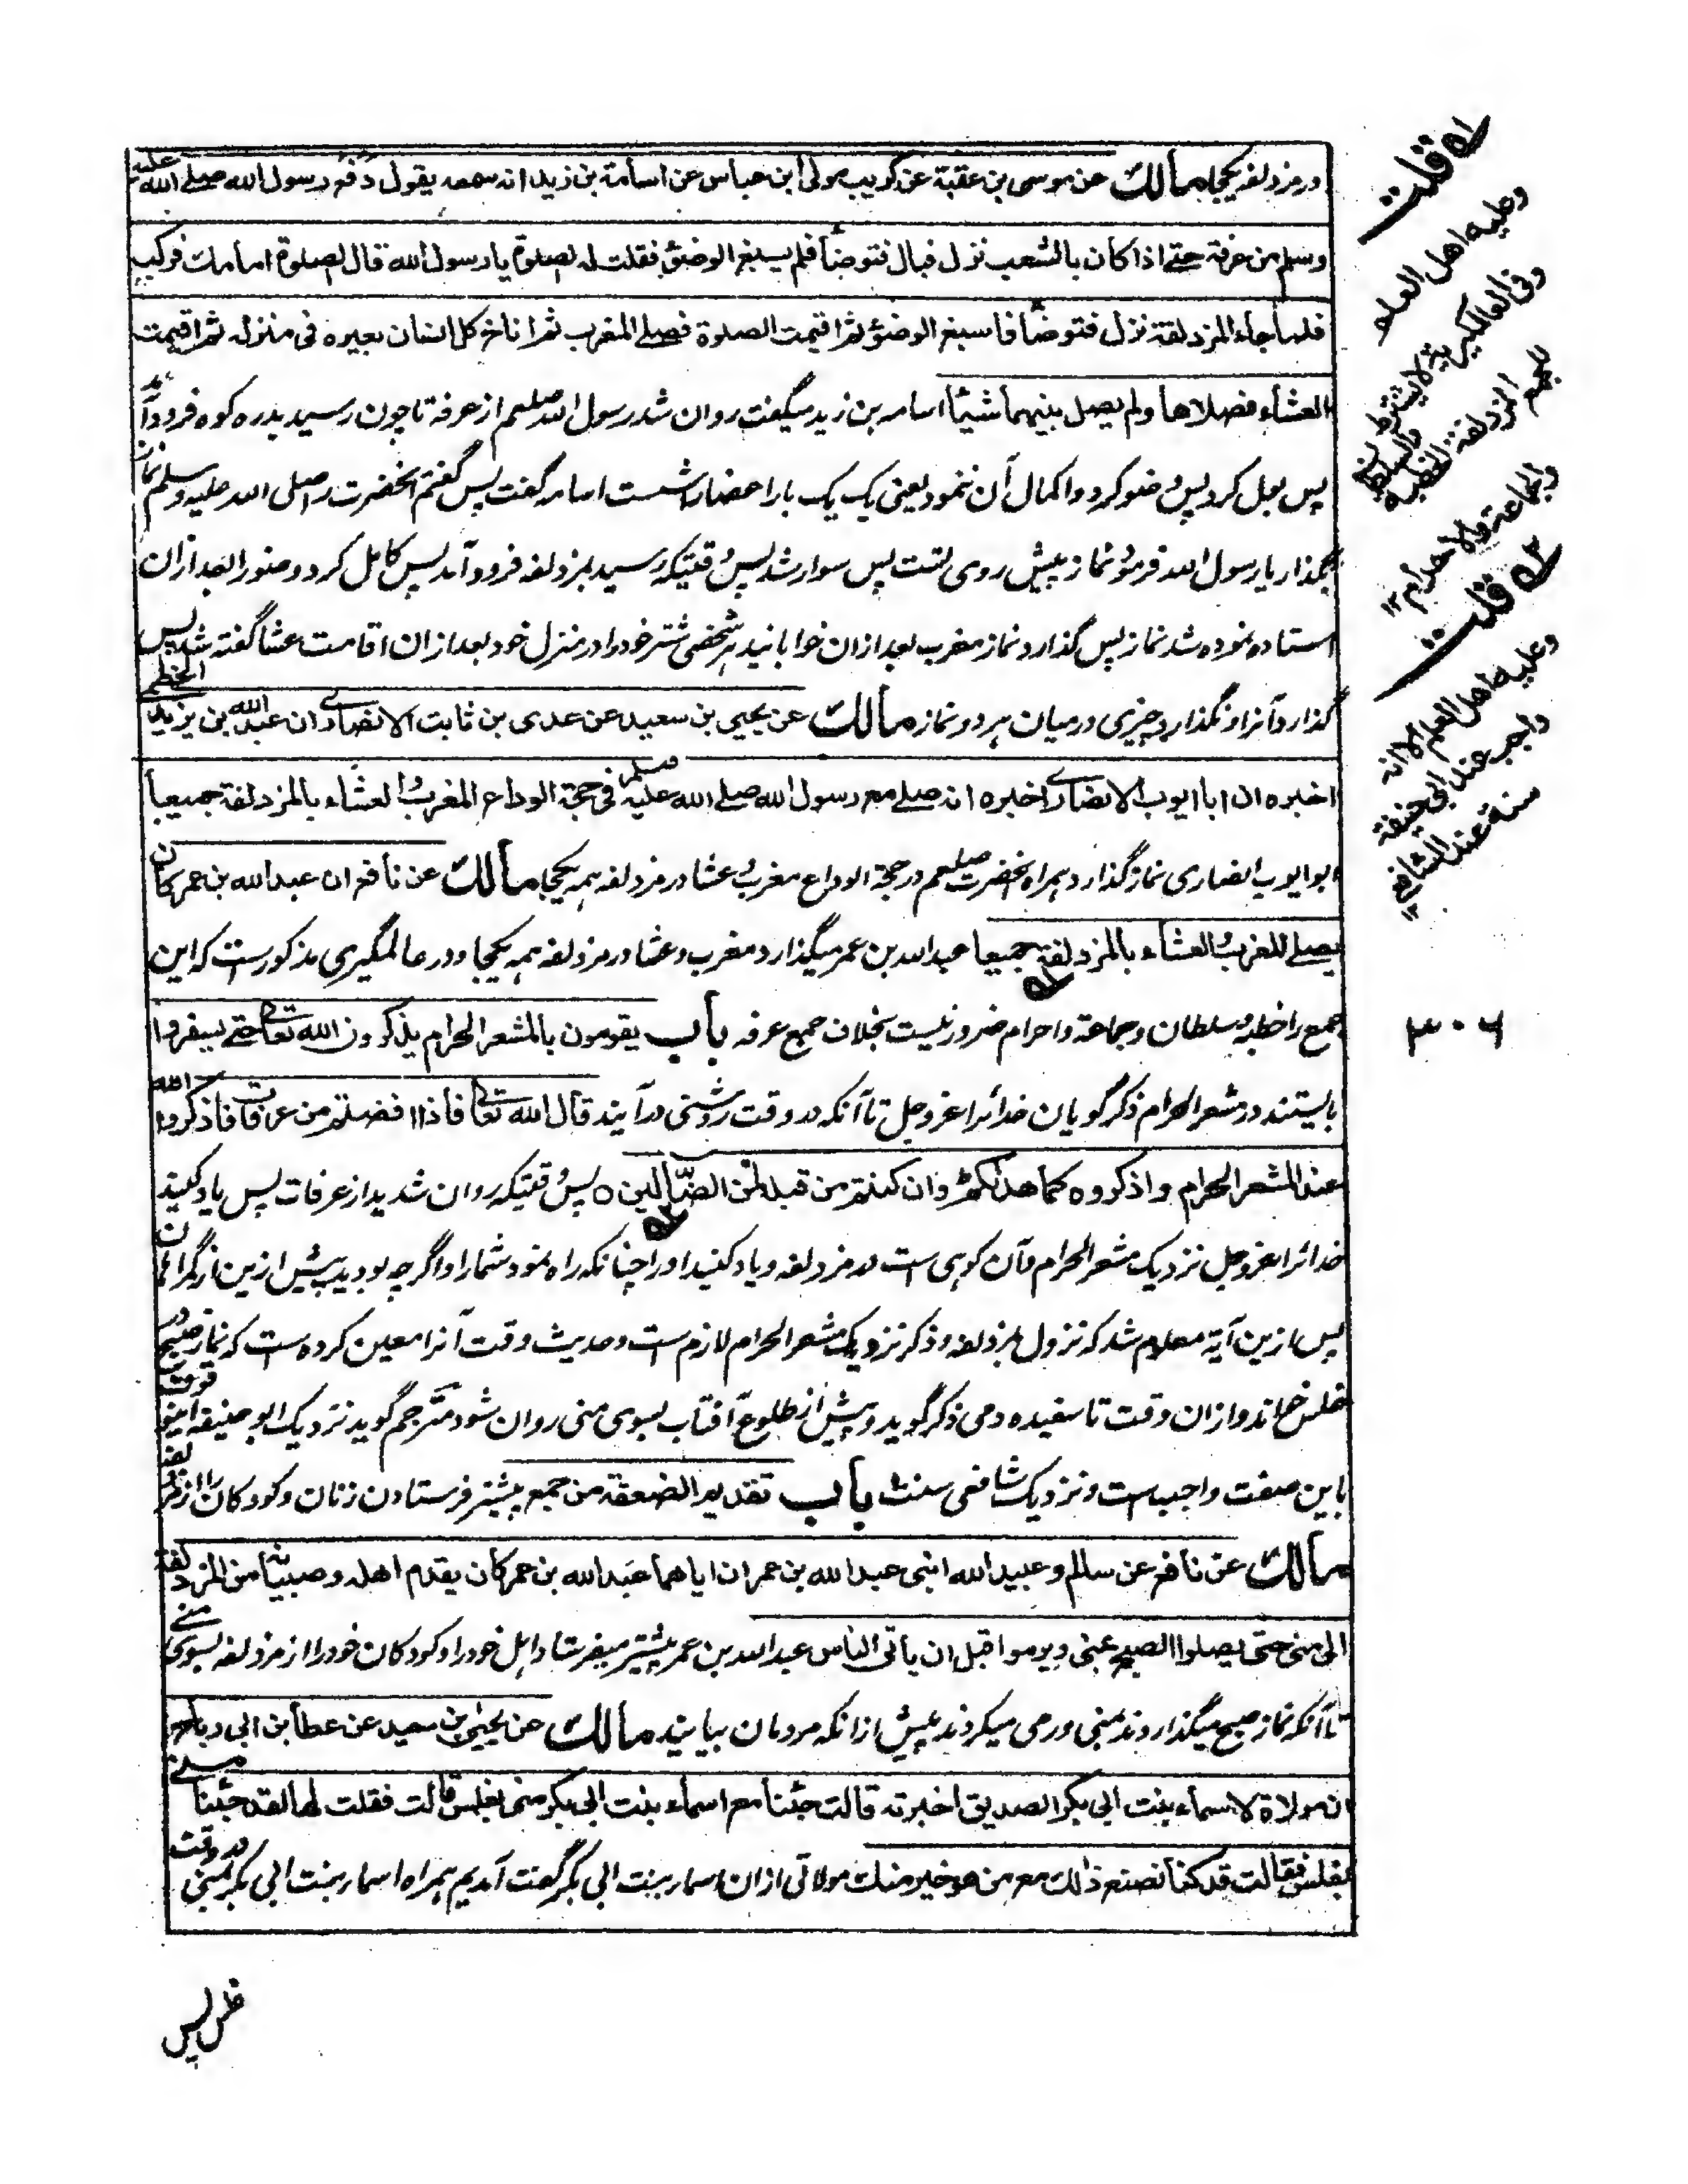 در مزدلفه یکجا مالك عن موسى بن عقبة عن كريب مولى ابن عباس عن اسامة بن زيد انه سمعه يقول دفع رسول الله صلے الله عليه
وسلم من عرفة حتے اذا كان بالشعب نزل فبال فتوضأ فلم يسبغ الوضوء فقلت له الصلوة يا رسول الله قال الصلوة امامك فركب
فلما جاء المزدلفة نزل فتوضأ فاسبغ الوضوء ثم اقيمت الصلوة فصلے المغرب ثم اناخ كل انسان بعيره فى منزله ثم اقيمت
العشاء فصلاها ولم يصل بينهما شيئا اسامه بن زید میگفت روان شد رسول الله صلعم از عرفة تا چون رسید بدره کوه فرود آمد
پس بول کرد پس وضو کرد و اکمال آن ننمود یعنی یک یک بار اعضا را شست اسامه گفت پس گفتم آنحضرت را صلی الله علیه وسلم نماز
بگذار یا رسول الله فرمود نماز پیش روی تست پس سوار شد پس وقتیکه رسید بمزدلفه فرود آمد پس کامل کرد وضو را بعد ازان
استاده نموده شد نماز پس گذارد نماز مغرب بعد ازان خوابانید هر شخصی شتر خود را در منزل خود بعد ازان اقامت عشا گفته شد پس
گذارد آنرا و نگذارد چیزی درمیان هر دو نماز مالك عن يحيى بن سعيد عن عدى بن ثابت الانصارے ان عبد الله بن يزيد الخطمى
اخبره ان ابا ايوب الانصارے اخبره انه صلے مع رسول الله صلے الله عليه وسلم فى حجة الوداع المغرب والعشاء بالمزدلفة جميعا
ابو ایوب انصاری نماز گذارد همراه آنحضرت صلعم در حجة الوداع مغرب و عشا در مزدلفه همه یکجا مالك عن نافع ان عبد الله بن عمر كان
يصلے المغرب والعشاء بالمزدلفة جميعا عبد الله بن عمر میگذارد مغرب و عشا در مزدلفه همه یکجا و در عالمگیری مذکورست که این
جمع را خطبه و سلطان و جماعة و احرام ضرور نیست بخلاف جمع عرفه باب يقومون بالمشعر الحرام يذكرون الله تعالے حتے يسفروا
بایستند در مشعر الحرام ذکر گویان خدائرا عز وجل تا آنکه در وقت روشنی در آیند قال الله تعالے فاذا افضتم من عرفات فاذكروا الله
عند المشعر الحرام واذكروه كما هدٰىكم وان كنتم من قبله لمن الضّآلّين ٥ پس وقتیکه روان شدید از عرفات پس یاد کنید
خدائرا عز وجل نزدیک مشعر الحرام و آن کوهی ست در مزدلفه و یاد کنید او را چنانکه راه نمود شما را و اگر چه بودید پیش ازین از گمراهان
پس ازین آیة معلوم شد که نزول بمزدلفه و ذکر نزدیک مشعر الحرام لازم ست و حدیث وقت آنرا معین کرده ست که نماز صبح در
غلس خواند و ازان وقت تا سفیده دمی ذکر گوید و پیش از طلوع آفتاب بسوی منی روان شود مترجم گوید نزدیک ابو حنیفه این وقوف
باین صفت واجب ست و نزدیک شافعی سنت باب تقديم الضعفة من جمع پیشتر فرستادن زنان و کودکان را از مزدلفه
مالك عن نافع عن سالم وعبيد الله ابنى عبد الله بن عمر ان اباهما عبد الله بن عمر كان يقدم اهله وصبيانه من المزدلفة
الى منى حتى يصلوا الصبح بمنى ويرموا قبل ان يأتى الناس عبد الله بن عمر پیشتر میفرستاد اهل خود را و کودکان خود را از مزدلفه بسوی منے
تا آنکه نماز صبح میگذاردند بمنی و رمی میکردند پیش ازانکه مردمان بیایند مالك عن يحيى بن سعيد عن عطاء بن ابى رباح
ان مولاة لاسماء بنت ابى بكر الصديق اخبرته قالت جئنا مع اسماء بنت ابى بكر منى بغلس قالت فقلت لها لقد جئنا منے
بغلس فقالت قد كنا نصنع ذلك مع من هو خير منك مولاتی ازان اسماء بنت ابی بکر گفت آمدیم همراه اسماء بنت ابی بکر بمنی در وقت
غلس پس
له قلت
وعليه اهل العلم
وفى العالمگيرية لا يشترط
لجمع المزدلفة الخطبة والسلطان
والجماعة والاحرام ١٢
٢ه قلت
وعليه اهل العلم الا انه
واجب عند ابى حنيفة
سنة عند الشافعى ١٢
٣٠٦